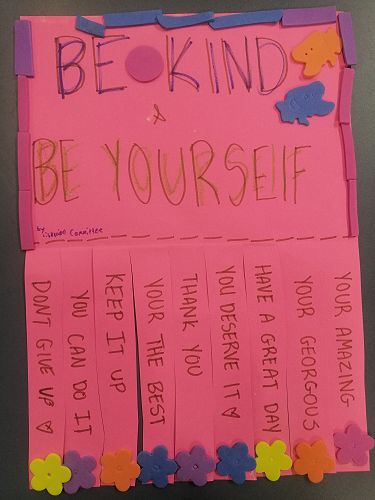 BE KIND
&
BE YOURSELF
by
Committee
DONT GIVE UP ♡
YOU CAN DO IT
KEEP IT UP
YOUR THE BEST
THANK YOU
YOU DESERVE IT ♡
HAVE A GREAT DAY
YOUR GEORGOUS
YOUR AMAZING